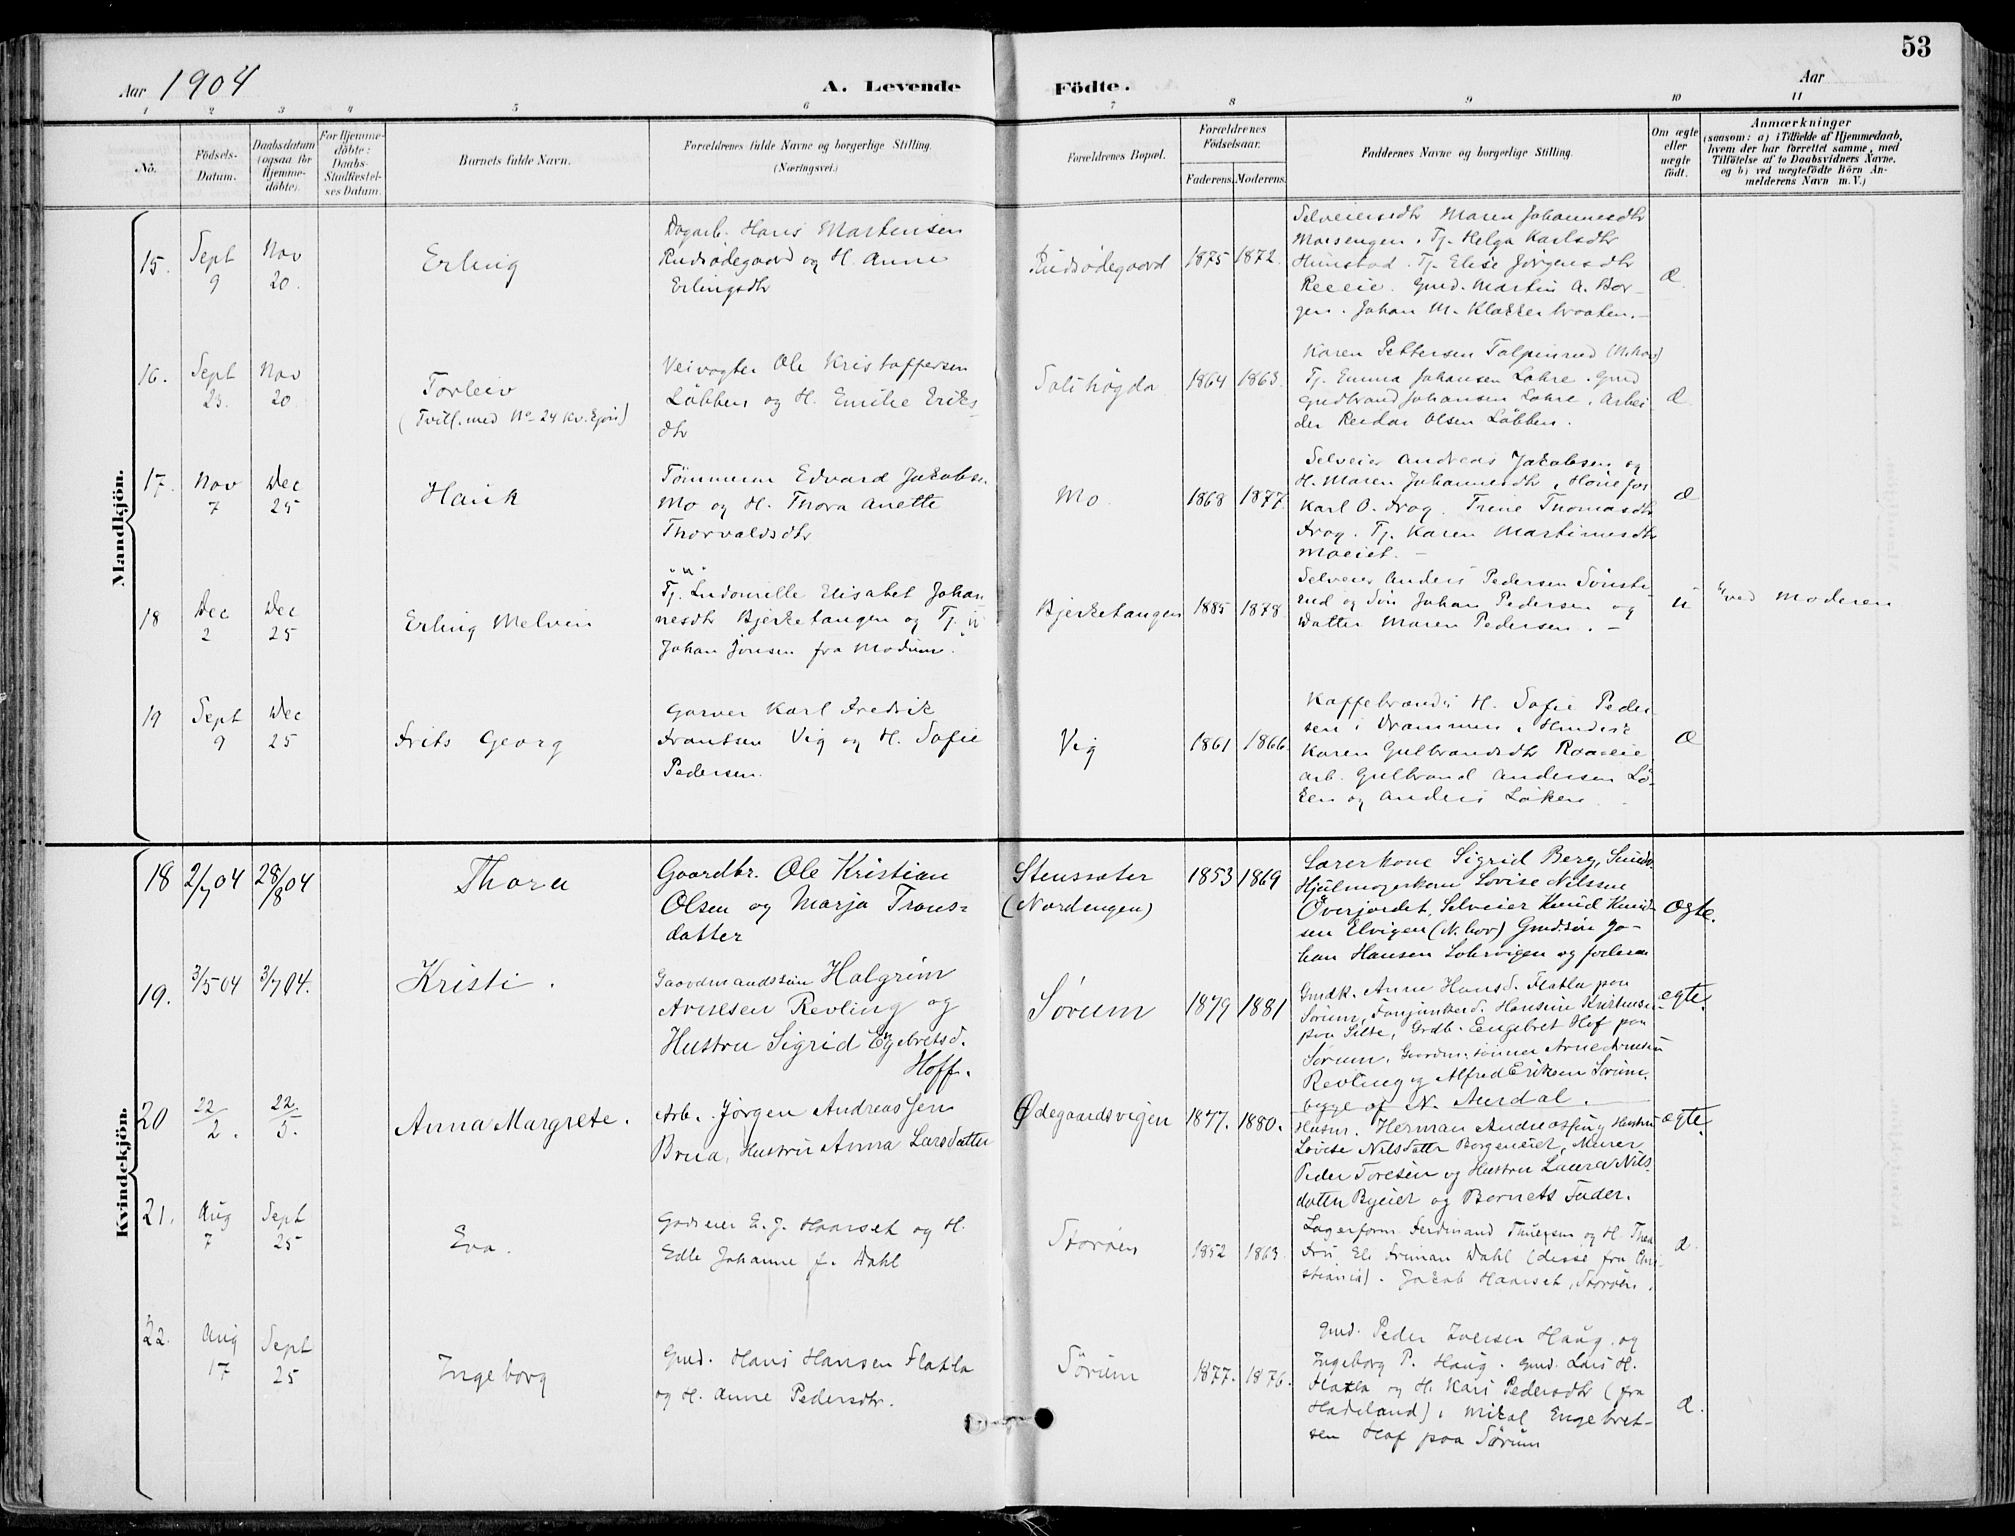 53
Aar 1904
A. Levende
Födte.
Aar
1 2 3 4 5 6 7 8 9 10 11
No.
Födsels-
Datum.
Daabsdatum
(ogsaa for
Hjemme-
döbte).
For Hjemme-
döbte:
Daabs-
Stadfæstel-
ses Datum.
Barnets fulde Navn.
Forældrenes fulde Navne og borgerlige Stilling.
(Næringsvei.)
Forældrenes Bopæl.
Forældrenes
Födselsaar.
Faderens. Moderens.
Faddernes Navne og borgerlige Stilling.
Om ægte
eller
uægte
födt.
Anmærkninger
(saasom: a) i Tilfælde af Hjemmedaab,
hvem der har forrettet samme, med
Tilföielse af to Daabsvidners Navne,
og b) ved uægtefödte Börn An-
melderens Navn m. V.)
Mandkjön.
15.
Sept
9
Nov
20.
Erling
Dagarb. Hans Martinsen
Rudsødegaard og H. Anne
Erlingsdtr
Rudsødegaard
1875 1872.
Selveiersdtr Maren Johannesdtr
Moesengen. Tj. Helga Karlsdtr
Hunstad. Tj. Elise Jørgensdtr
Gmd. Martin A. Bor-
gen. Johan M. Klækkenbraaten.
Æ.
16.
Sept
23.
Nov
20.
Torleiv
(Tvill. med No 24 Kv.kjøn)
Veivogter Ole Kristoffersen
Løbben og H. Emilie Eriks-
dtr
Solihøgda
1864 1863.
Karen Pettersen Tolpinrud (N.hov)
Tj. Emma Johansen Lohre. Gmd
Gudbrand Johansen Lohre. Arbei
der Reidar Olsen Løbben.
Æ.
17.
Nov
7
Dec
25
Hauk
Tømmerm Edvard Jakobs.
Mo og H. Thora Anette
Thorvaldsdtr
Mo.
1868 1877.
Selveier Andreas Jakobsen og
H. Maren Johannesdtr, Hønefos
Karl O. Frog. Trine Thomasdtr
Frog. Tj. Karen Martinusdtr
Moeiet.
Æ
18
Dec
2
Dec
25
Erling Melvin
"u"
Tj. Ludoville Elisabet Johan
nesdtr Bjerketangen og Tj. "u"
Johan Jonsen fra Modum.
Bjerketangen
1885 1878.
Selveier Anders Pedersen Sønste
rud og Søn Johan Pedersen og
Datter Maren Pedersen.
u
ved Moderen
19
Sept
9
Dec
25
Frits Georg
Garver Karl Fredrik
Frantsen Vig og H. Sofie
Pedersen.
Vig
1861 1866.
Kaffebrænders H. Sofie Peder
sen i Drammen.
Karen Gulbrandsdtr
arb. Gulbrand Andersen Lø-
ken og Anders Løken.
Æ
Kvindekjön.
18
2/7 04
28/8 04
Thora
Gaardbr. Ole Kristian
Olsen og Marja Frans-
datter
Stenssæter
(Nordengen)
1853 1869
Lærerkone Sigrid Berg,
Hjulmagerkone Lovise Nilssen
Øverjordet, Selveier Knud Knud-
sen Elvigen (N. hov) Gmdsøn Jo-
han Hansen Lohrvigen og faderen
Ægte.
19.
3/5 04
3/7 04.
Kristi.
Gaardmandssøn Halgrim
Arnesen Revling og
Hustru Sigrid Engebretsd.
Hoff.
Sørum
1879 1881
Gmdk. Anne Hansd. Flatla paa
Sørum, Hansine Kristensen
paa Grdb. Engebret Hof paa
Sørum. Gaardm.sønner Arne Arnesen
Revling og Alfred Eriksen Sørum.
begge af N. Aurdal.
ægte.
20
22/2.
22/5.
Anna Margrete.
Arb. Jørgen Andreassen
Brua, Hustru Anna Larsdatter
Ødegaardsvigen
1877. 1880.
Husm. Herman Andreassen og Hustru
Lovise Nilsdatter Borgeneiet, Murer
Peder Toresen og Hustru Laura Nils-
datter Byeiet og Barnets Fader.
ægte.
21.
Aug
7
Sept
25
Eva.
Godseier E. J. Haarset og H.
Edle Johanne f. Dahl
Storøen
1852 1863.
Lagerform. Ferdinand og H. Thea
Fru Els Friman Dahl (disse fra Chri-
stiania). Jakob Haarset, Storøen.
Æ.
22.
Aug
17
Sept
25
Ingeborg
Gmd. Hans Hansen Flatla
og H. Anne Pedersdtr.
Sørum
1877. 1876.
Gmd. Peder Iversen Haug. og
Ingeborg P. Haug. Gmd. Lars H.
Flatla og H. Kari Pedersdtr (fra
Hadeland), Mikal Engebret-
sen Hof paa Sørum
Æ.